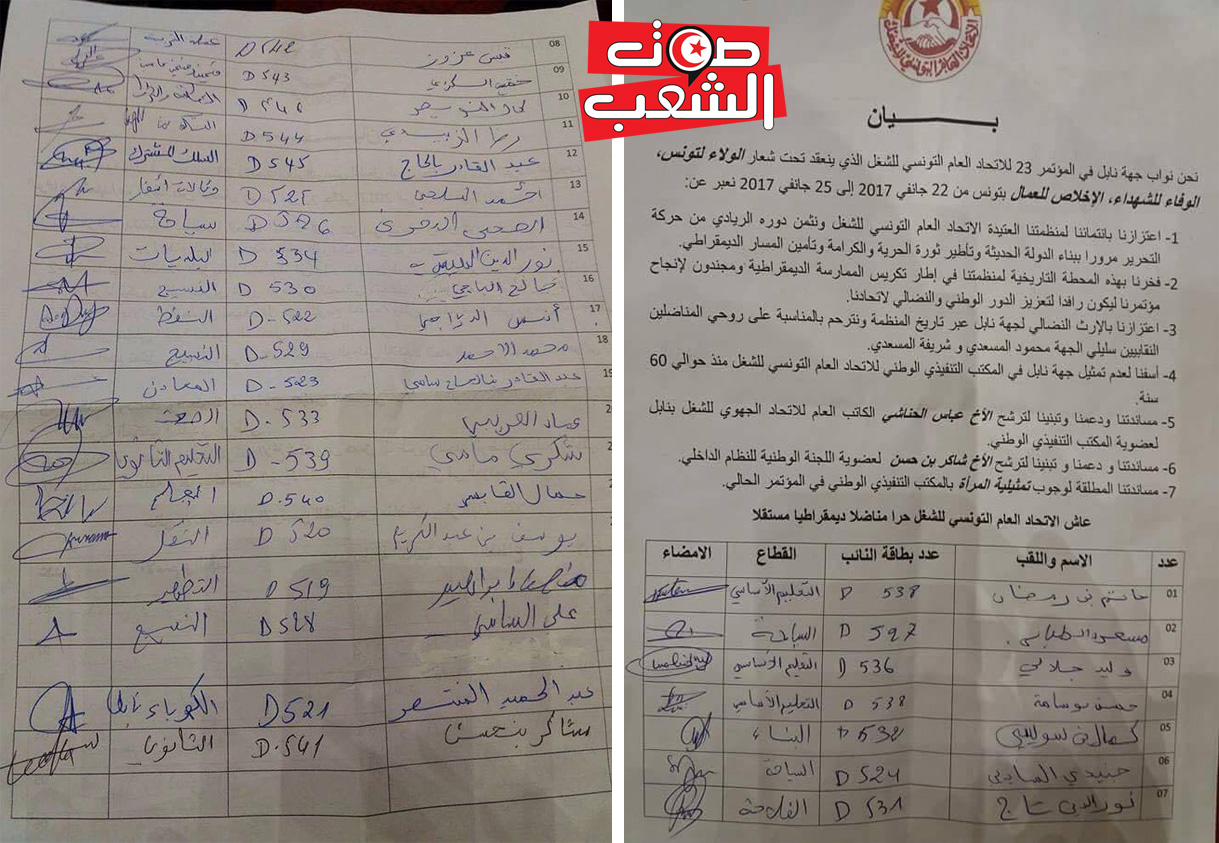 صوت
الشعب
الاتحاد العام التونسي للشغل
بـــــــيان
نحن نواب جهة نابل في المؤتمر 23 للاتحاد العام التونسي للشغل الذي ينعقد تحت شعار الولاء لتونس،
الوفاء للشهداء، الإخلاص للعمال بتونس من 22 جانفي 2017 إلى 25 جانفي 2017 نعبر عن:
1- اعتزازنا بانتمائنا لمنظمتنا العتيدة الاتحاد العام التونسي للشغل ونثمن دوره الريادي من حركة
التحرير مرورا ببناء الدولة الحديثة وتأطير ثورة الحرية والكرامة وتأمين المسار الديمقراطي.
2- فخرنا بهذه المحطة التاريخية لمنظمتنا في إطار تكريس الممارسة الديمقراطية ومجندون لإنجاح
مؤتمرنا ليكون رافدا لتعزيز الدور الوطني والنضالي لاتحادنا.
3- اعتزازنا بالإرث النضالي لجهة نابل عبر تاريخ المنظمة ونترحم بالمناسبة على روحي المناضلين
النقابيين سليلي الجهة محمود المسعدي و شريفة المسعدي.
4- أسفنا لعدم تمثيل جهة نابل في المكتب التنفيذي الوطني للاتحاد العام التونسي للشغل منذ حوالي 60
سنة.
5- مساندتنا ودعمنا وتبنينا لترشح الأخ عباس الحناشي الكاتب العام للاتحاد الجهوي للشغل بنابل
لعضوية المكتب التنفيذي الوطني.
6- مساندتنا و دعمنا و تبنينا لترشح الأخ شاكر بن حسن لعضوية اللجنة الوطنية للنظام الداخلي.
7- مساندتنا المطلقة لوجوب تمثيلية المرأة بالمكتب التنفيذي الوطني في المؤتمر الحالي.
عاش الاتحاد العام التونسي للشغل حرا مناضلا ديمقراطيا مستقلا
عدد الاسم واللقب عدد بطاقة النائب القطاع الامضاء
01 حاتم بن رمضان D 538 التعليم الأساسي
02 مسعود D 527 السياحة
03 وليد جلالي D 536 التعليم الأساسي
04 حسن بوسامة D 538 التعليم الأساسي
05 كمال بن D 532 البناء
06 D 524 السياحة
07 نور الدين D 531 الفلاحة
08 قيس عزوز D 542
09 D 543
10
11 رضا الزبيدي D 544
12 عبد القادر بالحاج D 545 السلك المشترك
13 أحمد D 525
14 D 526 سياحة
15 نور الدين D 534 البلديات
16 صالح D 530 النسيج
17 أنس الدراجي D-522 النفط
18 محمد الأحمر D-529 النسيج
19 عبد القادر D-523 المعادن
2 عماد D-533 الصحة
2 شكري مامي D-539 التعليم الثانوي
2 جمال القابسي D.540
يوسف بن عبد الكريم D 520 النقل
D 519 التطهير
علي D 528 النسيج
عبد الحميد المنتصر D 521 الكهرباء
شاكر بن حسن D.541 الثانوي